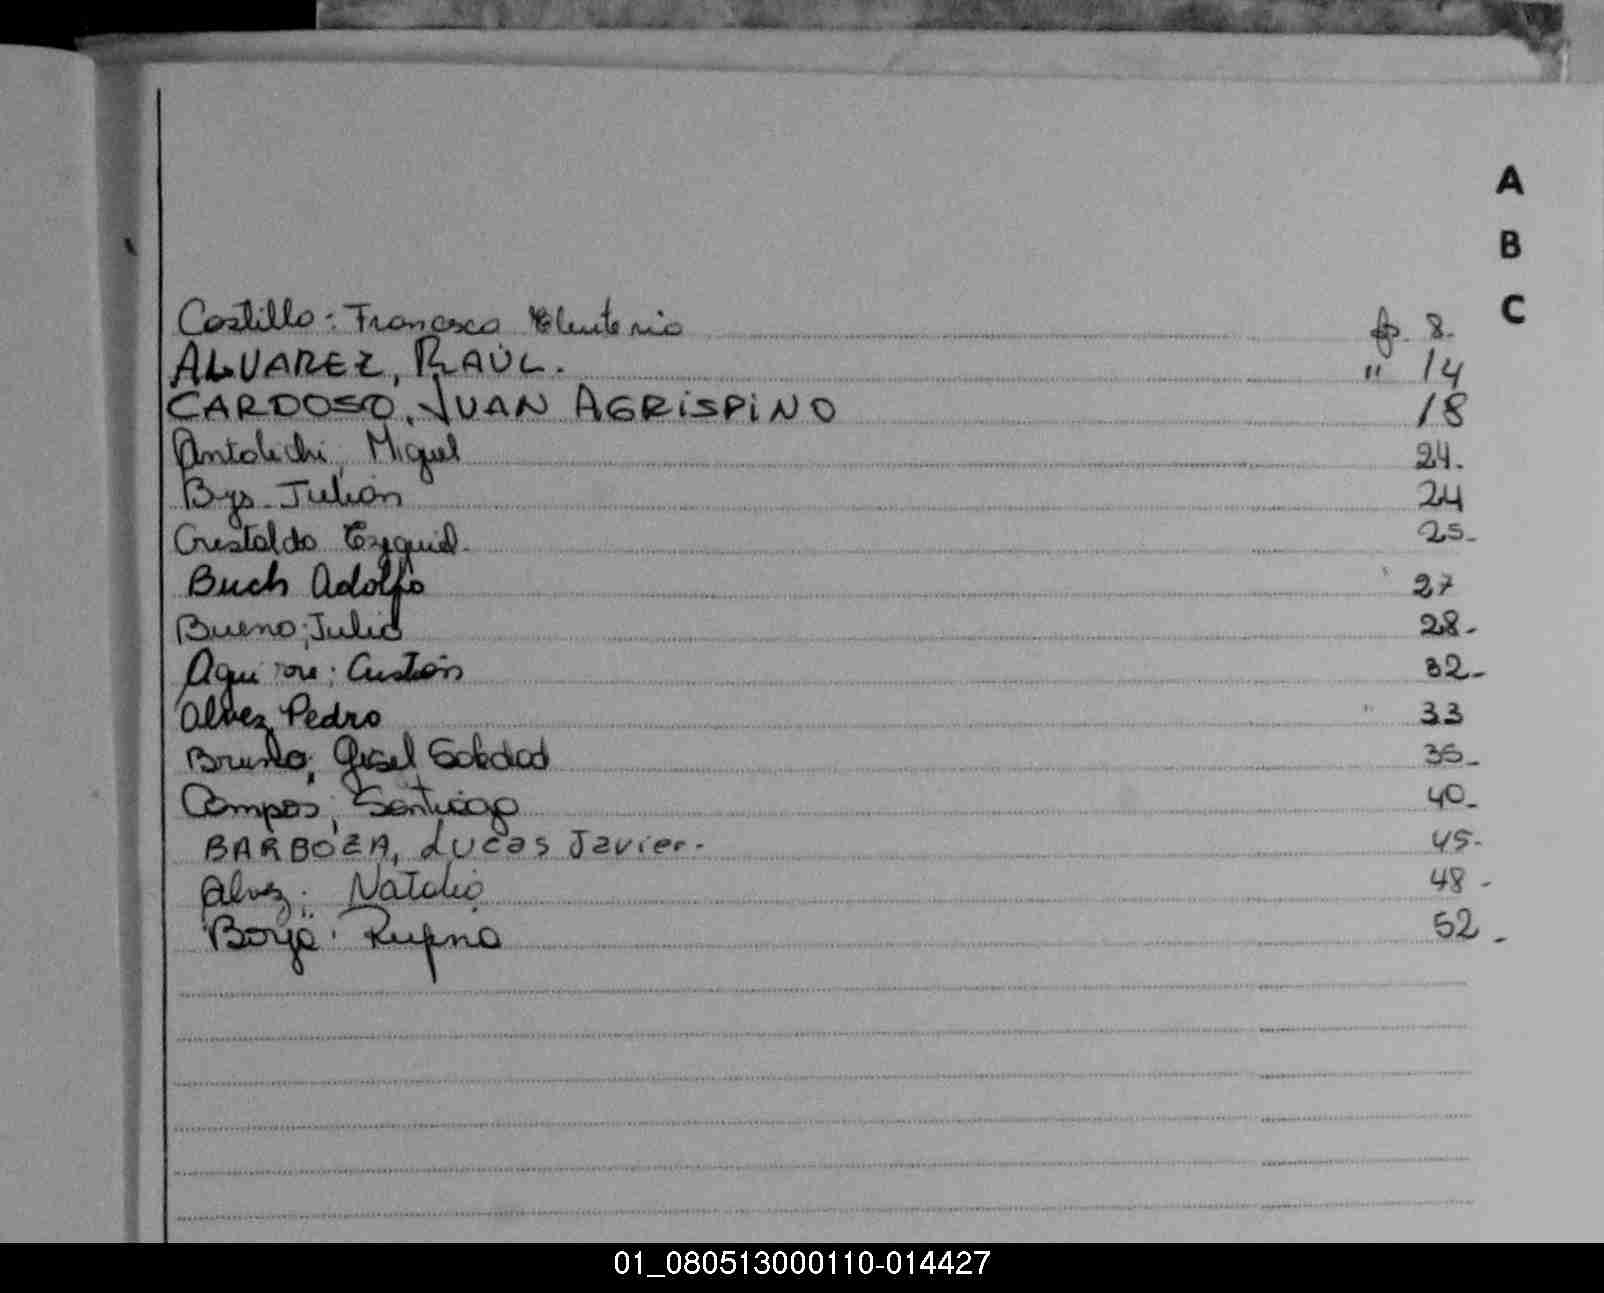 A
B
C
Castillo: Francisco Eleuterio fo. 8.
ALVAREZ, RAÚL. " 14
CARDOSO, JUAN AGRISPINO 18
Antolichi, Miguel 24.
Bys Julián 24
Cristaldo Ezequiel. 25-
Buch Adolfo 27
Bueno; Julio 28-
Aguirre; Cristián 32-
Alvez Pedro 33
Bruno; Gisel Soledad 35-
Campos; Santiago 40-
BARBOZA, Lucas Javier. 45-
Alvez. Natalio 48-
Borja. Rufino 52-
01_080513000110-014427